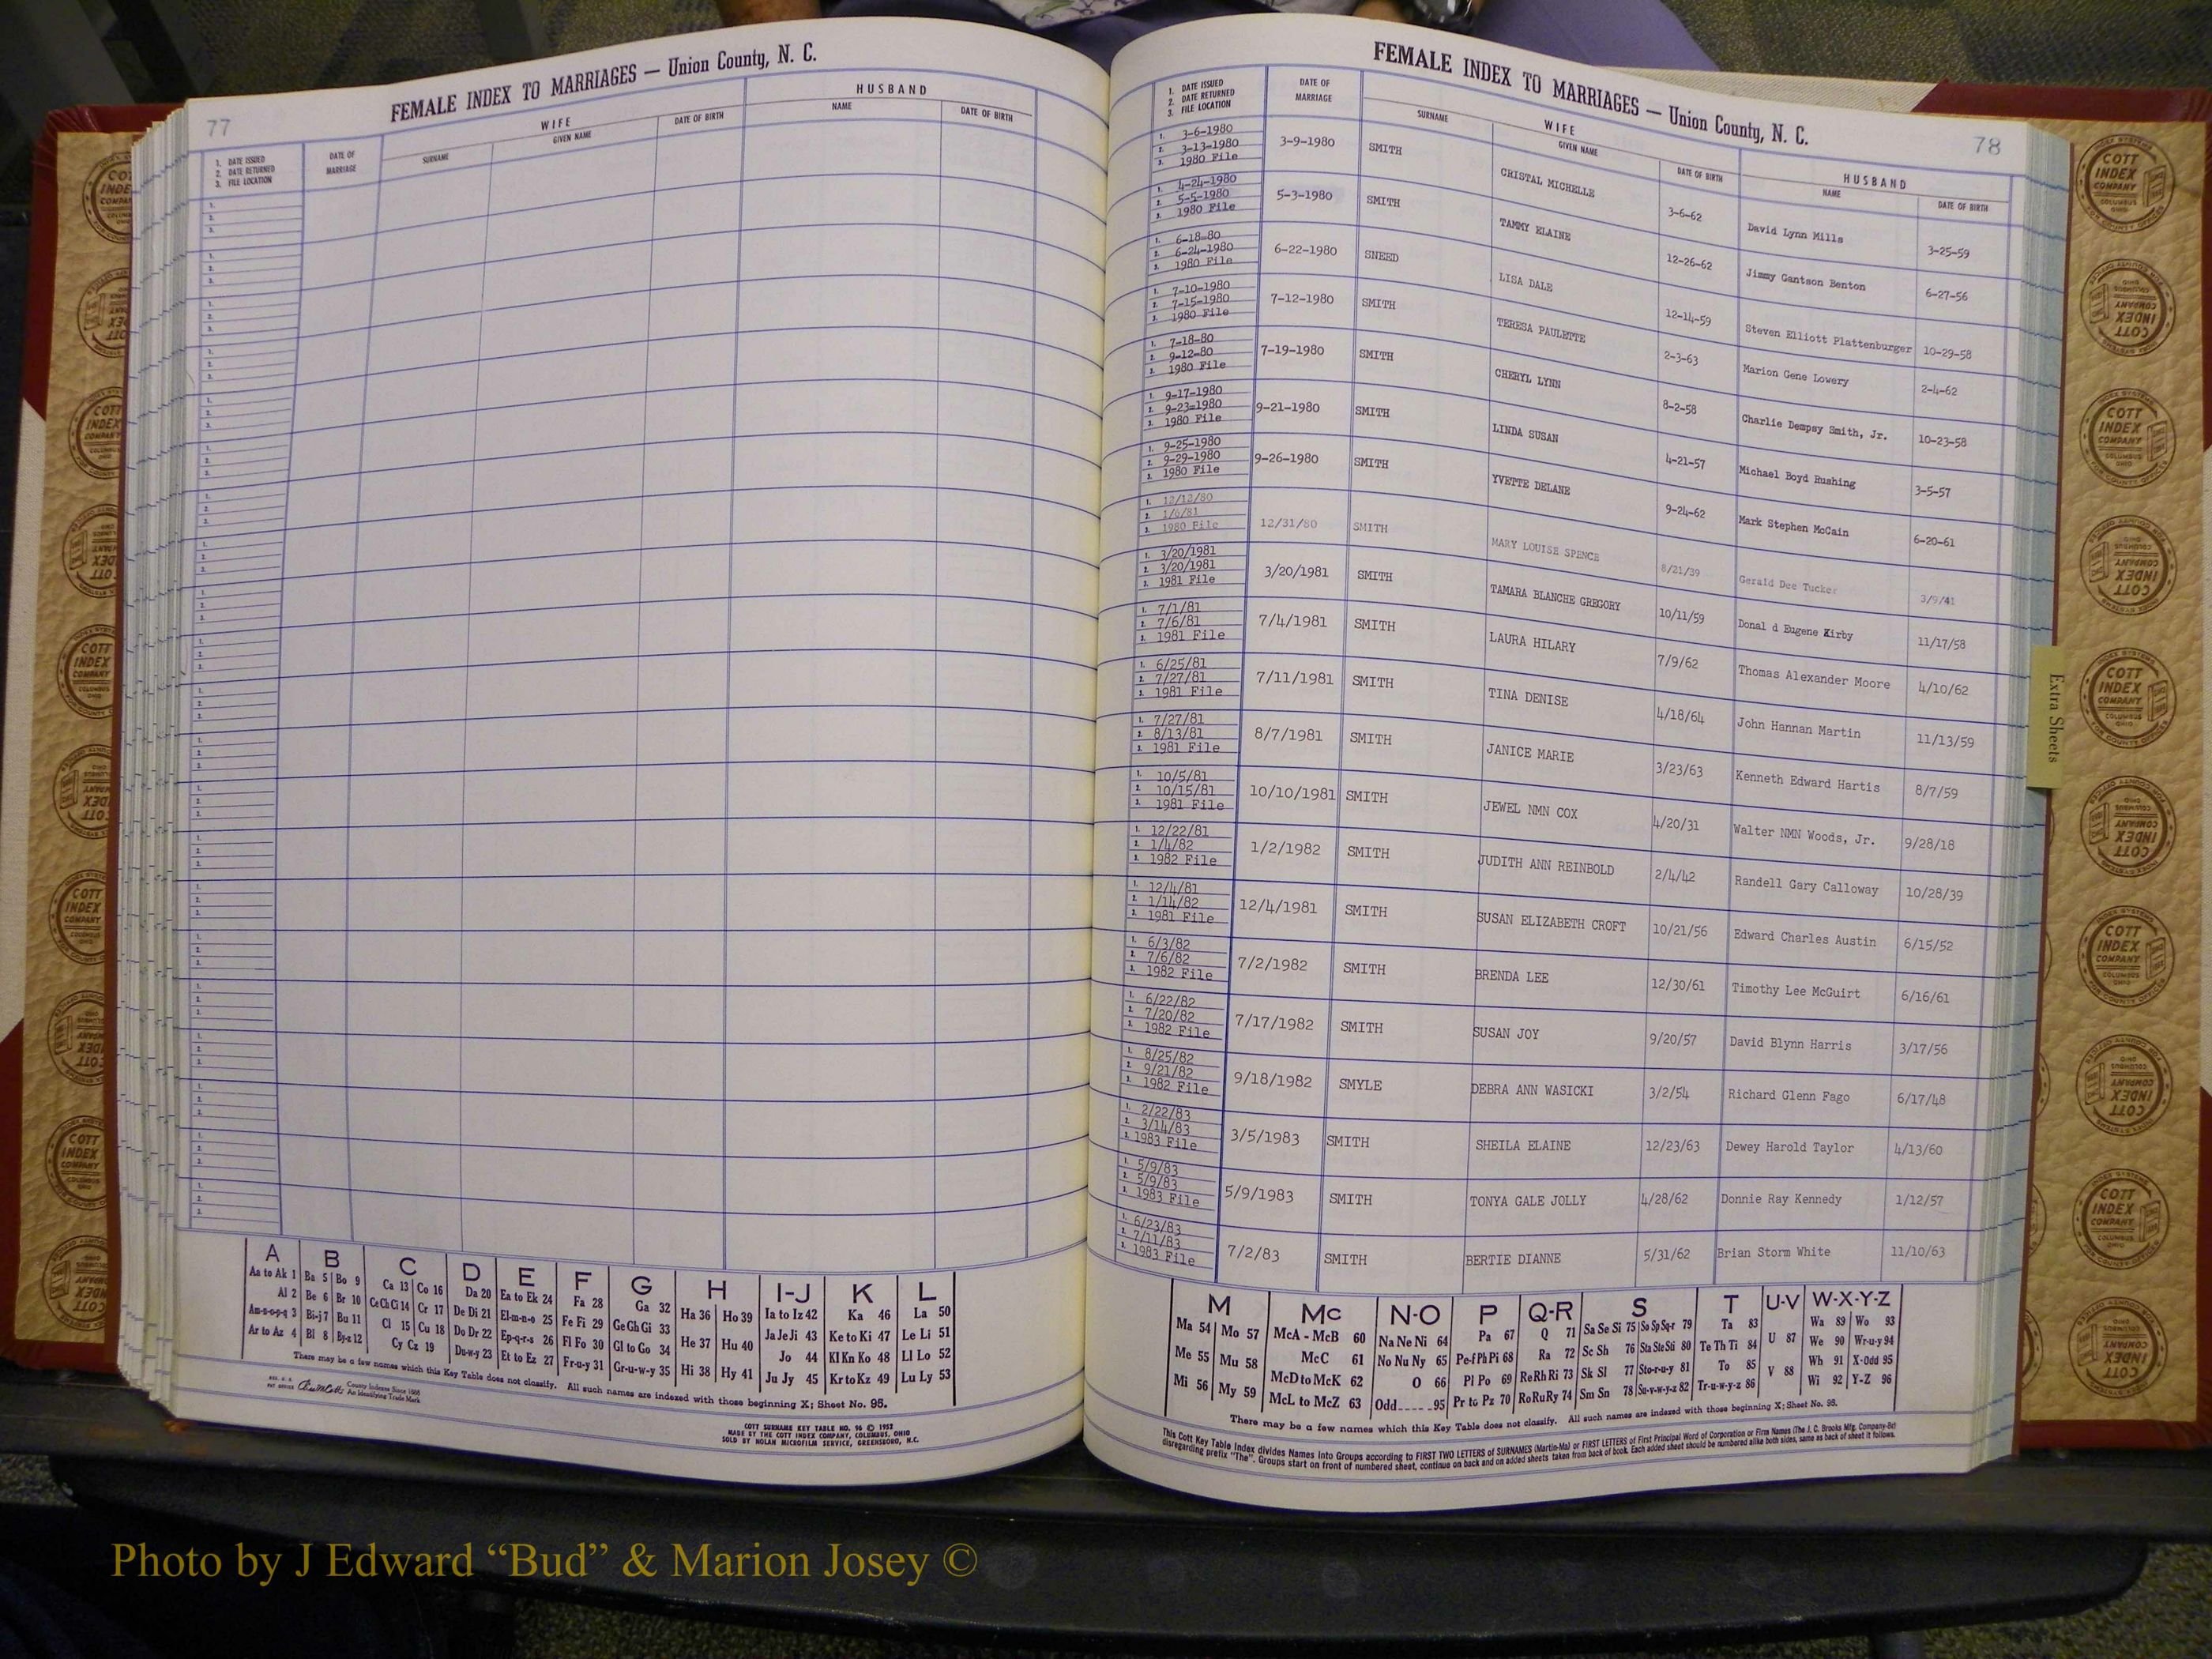 FEMALE INDEX TO MARRIAGES — Union County, N. C.
77
1. DATE ISSUED
2. DATE RETURNED
3. FILE LOCATION
DATE OF MARRIAGE
WIFE
SURNAME
GIVEN NAME
DATE OF BIRTH
HUSBAND
NAME
DATE OF BIRTH
A B C D E F G H I-J K L
Aa to Ak 1 Ba 5 Bo 9 Ca 13 Co 16 Da 20 Ea to Ek 24 Fa 28 Ga 32 Ha 36 Ho 39 Ia to Iz 42 Ka 46 La 50
Al 2 Be 6 Br 10 Ce Ch Ci 14 Cr 17 De Di 21 El-m-n-o 25 Fe Fi 29 Ge Gh Gi 33 He 37 Hu 40 Ja Je Ji 43 Ke to Ki 47 Le Li 51
Am-n-o-p-q 3 Bi-j 7 Bu 11 Cl 15 Cu 18 Do Dr 22 Ep-q-r-s 26 Fl Fo 30 Gl to Go 34 Hi 38 Hy 41 Jo 44 Kl Kn Ko 48 Ll Lo 52
Ar to Az 4 Bl 8 By-z 12 Cy Cz 19 Du-w-y 23 Et to Ez 27 Fr-u-y 31 Gr-u-w-y 35 Ju Jy 45 Kr to Kz 49 Lu Ly 53
There may be a few names which this Key Table does not classify. All such names are indexed with those beginning X; Sheet No. 95.
County Indexes Since 1888
An Identifying Trade Mark
COTT SURNAME KEY TABLE NO. 96 © 1952
MADE BY THE COTT INDEX COMPANY, COLUMBUS, OHIO
SOLD BY NOLAN MICROFILM SERVICE, GREENSBORO, N.C.
FEMALE INDEX TO MARRIAGES — Union County, N. C.
78
1. DATE ISSUED
2. DATE RETURNED
3. FILE LOCATION
DATE OF MARRIAGE
WIFE
SURNAME
GIVEN NAME
DATE OF BIRTH
HUSBAND
NAME
DATE OF BIRTH
1. 3-6-1980
2. 3-13-1980
3. 1980 File
3-9-1980 SMITH CRISTAL MICHELLE 3-6-62 David Lynn Mills 3-25-59
1. 4-24-1980
2. 5-5-1980
3. 1980 File
5-3-1980 SMITH TAMMY ELAINE 12-26-62 Jimmy Gantson Benton 6-27-56
1. 6-18-80
2. 6-24-1980
3. 1980 File
6-22-1980 SNEED LISA DALE 12-14-59 Steven Elliott Plattenburger 10-29-58
1. 7-10-1980
2. 7-15-1980
3. 1980 File
7-12-1980 SMITH TERESA PAULETTE 2-3-63 Marion Gene Lowery 2-4-62
1. 7-18-80
2. 9-12-80
3. 1980 File
7-19-1980 SMITH CHERYL LYNN 8-2-58 Charlie Dempsy Smith, Jr. 10-23-58
1. 9-17-1980
2. 9-23-1980
3. 1980 File
9-21-1980 SMITH LINDA SUSAN 4-21-57 Michael Boyd Rushing 3-5-57
1. 9-25-1980
2. 9-29-1980
3. 1980 File
9-26-1980 SMITH YVETTE DELANE 9-24-62 Mark Stephen McCain 6-20-61
1. 12/12/80
2. 1/6/81
3. 1980 File
12/31/80 SMITH MARY LOUISE SPENCE 8/21/39 Gerald Dee Tucker 3/9/41
1. 3/20/1981
2. 3/20/1981
3. 1981 File
3/20/1981 SMITH TAMARA BLANCHE GREGORY 10/11/59 Donal d Eugene Kirby 11/17/58
1. 7/1/81
2. 7/6/81
3. 1981 File
7/4/1981 SMITH LAURA HILARY 7/9/62 Thomas Alexander Moore 4/10/62
1. 6/25/81
2. 7/27/81
3. 1981 File
7/11/1981 SMITH TINA DENISE 4/18/64 John Hannan Martin 11/13/59
1. 7/27/81
2. 8/13/81
3. 1981 File
8/7/1981 SMITH JANICE MARIE 3/23/63 Kenneth Edward Hartis 8/7/59
1. 10/5/81
2. 10/15/81
3. 1981 File
10/10/1981 SMITH JEWEL NMN COX 4/20/31 Walter NMN Woods, Jr. 9/28/18
1. 12/22/81
2. 1/4/82
3. 1982 File
1/2/1982 SMITH JUDITH ANN REINBOLD 2/4/42 Randell Gary Calloway 10/28/39
1. 12/4/81
2. 1/14/82
3. 1981 File
12/4/1981 SMITH SUSAN ELIZABETH CROFT 10/21/56 Edward Charles Austin 6/15/52
1. 6/3/82
2. 7/6/82
3. 1982 File
7/2/1982 SMITH BRENDA LEE 12/30/61 Timothy Lee McGuirt 6/16/61
1. 6/22/82
2. 7/20/82
3. 1982 File
7/17/1982 SMITH SUSAN JOY 9/20/57 David Blynn Harris 3/17/56
1. 8/25/82
2. 9/21/82
3. 1982 File
9/18/1982 SMYLE DEBRA ANN WASICKI 3/2/54 Richard Glenn Fago 6/17/48
1. 2/22/83
2. 3/14/83
3. 1983 File
3/5/1983 SMITH SHEILA ELAINE 12/23/63 Dewey Harold Taylor 4/13/60
1. 5/9/83
2. 5/9/83
3. 1983 File
5/9/1983 SMITH TONYA GALE JOLLY 4/28/62 Donnie Ray Kennedy 1/12/57
1. 6/23/83
2. 7/11/83
3. 1983 File
7/2/83 SMITH BERTIE DIANNE 5/31/62 Brian Storm White 11/10/63
M Mc N-O P Q-R S T U-V W-X-Y-Z
Ma 54 Mo 57 McA - McB 60 Na Ne Ni 64 Pa 67 Q 71 Sa Se Si 75 So Sp Sq-r 79 Ta 83 U 87 Wa 89 Wo 93
Me 55 Mu 58 McC 61 No Nu Ny 65 Pe-f Ph Pi 68 Ra 72 Sc Sh 76 Sta Ste Sti 80 Te Th Ti 84 V 88 We 90 Wr-u-y 94
Mi 56 My 59 McD to McK 62 O 66 Pl Po 69 Re Rh Ri 73 Sk Sl 77 Sto-r-u-y 81 To 85 Wh 91 X-Odd 95
McL to McZ 63 Odd 95 Pr to Pz 70 Ro Ru Ry 74 Sm Sn 78 Su-v-w-y-z 82 Tr-u-w-y-z 86 Wi 92 Y-Z 96
There may be a few names which this Key Table does not classify. All such names are indexed with those beginning X; Sheet No. 95.
This Cott Key Table Index divides Names into Groups according to FIRST TWO LETTERS of SURNAMES (Martin-Ma) or FIRST LETTERS of First Principal Word of Corporation or Firm Names (The J. C. Brooks Mfg. Company-Br)
disregarding prefix "The". Groups start on front of numbered sheet, continue on back and on added sheets taken from back of book. Each added sheet should be numbered alike both sides, same as back of sheet it follows.
Extra Sheets
COTT INDEX COMPANY
COLUMBUS OHIO
Photo by J Edward “Bud” & Marion Josey ©